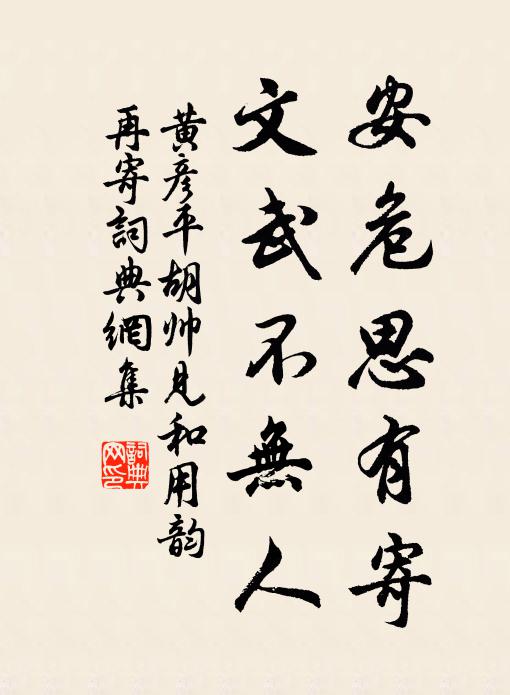 安危思有寄
文武不無人
黃彥平胡帅見和用韵
再寄詞典網集
詞典網印